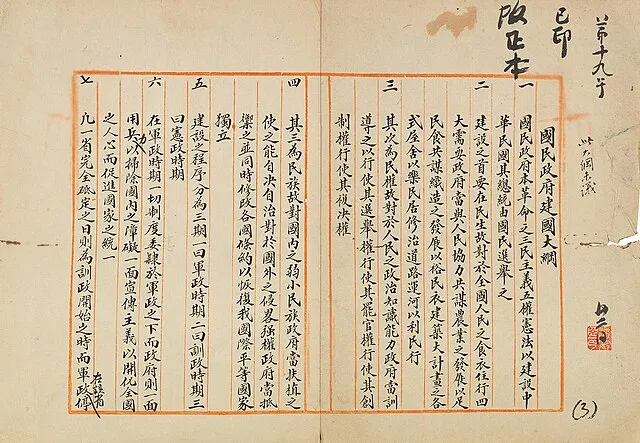 第十九
已印
正本
國民政府建國大綱
一 國民政府本革命之三民主義五權憲法以建設中
華民國其總統由國民選舉之
二 建設之首要在民生故對於全國人民之食衣住行四
大需要政府當與人民協力共謀農業之發展以足
民食共謀織造之發展以裕民衣建築大計畫之各
式屋舍以樂民居修治道路運河以利民行
三 其次為民權故對於人民之政治知識能力政府當訓
導之以行使其選舉權行使其罷官權行使其創
制權行使其複決權
四 其三為民族故對國內之弱小民族政府當扶植之
使之能自決自治對於國外之侵畧强權政府當抵
禦之並同時修改各國條約以恢復我國際平等國家
獨立
五 建設之程序分為三期一曰軍政時期二曰訓政時期三
曰憲政時期
六 在軍政時期一切制度委隸於軍政之下而政府則一面
用兵力以掃除國內之障礙一面宣傳主義以開化全國
之人心而促進國家之統一
七 凡一省完全砥定之日則為訓政開始之時而軍政停
在該省
(3)